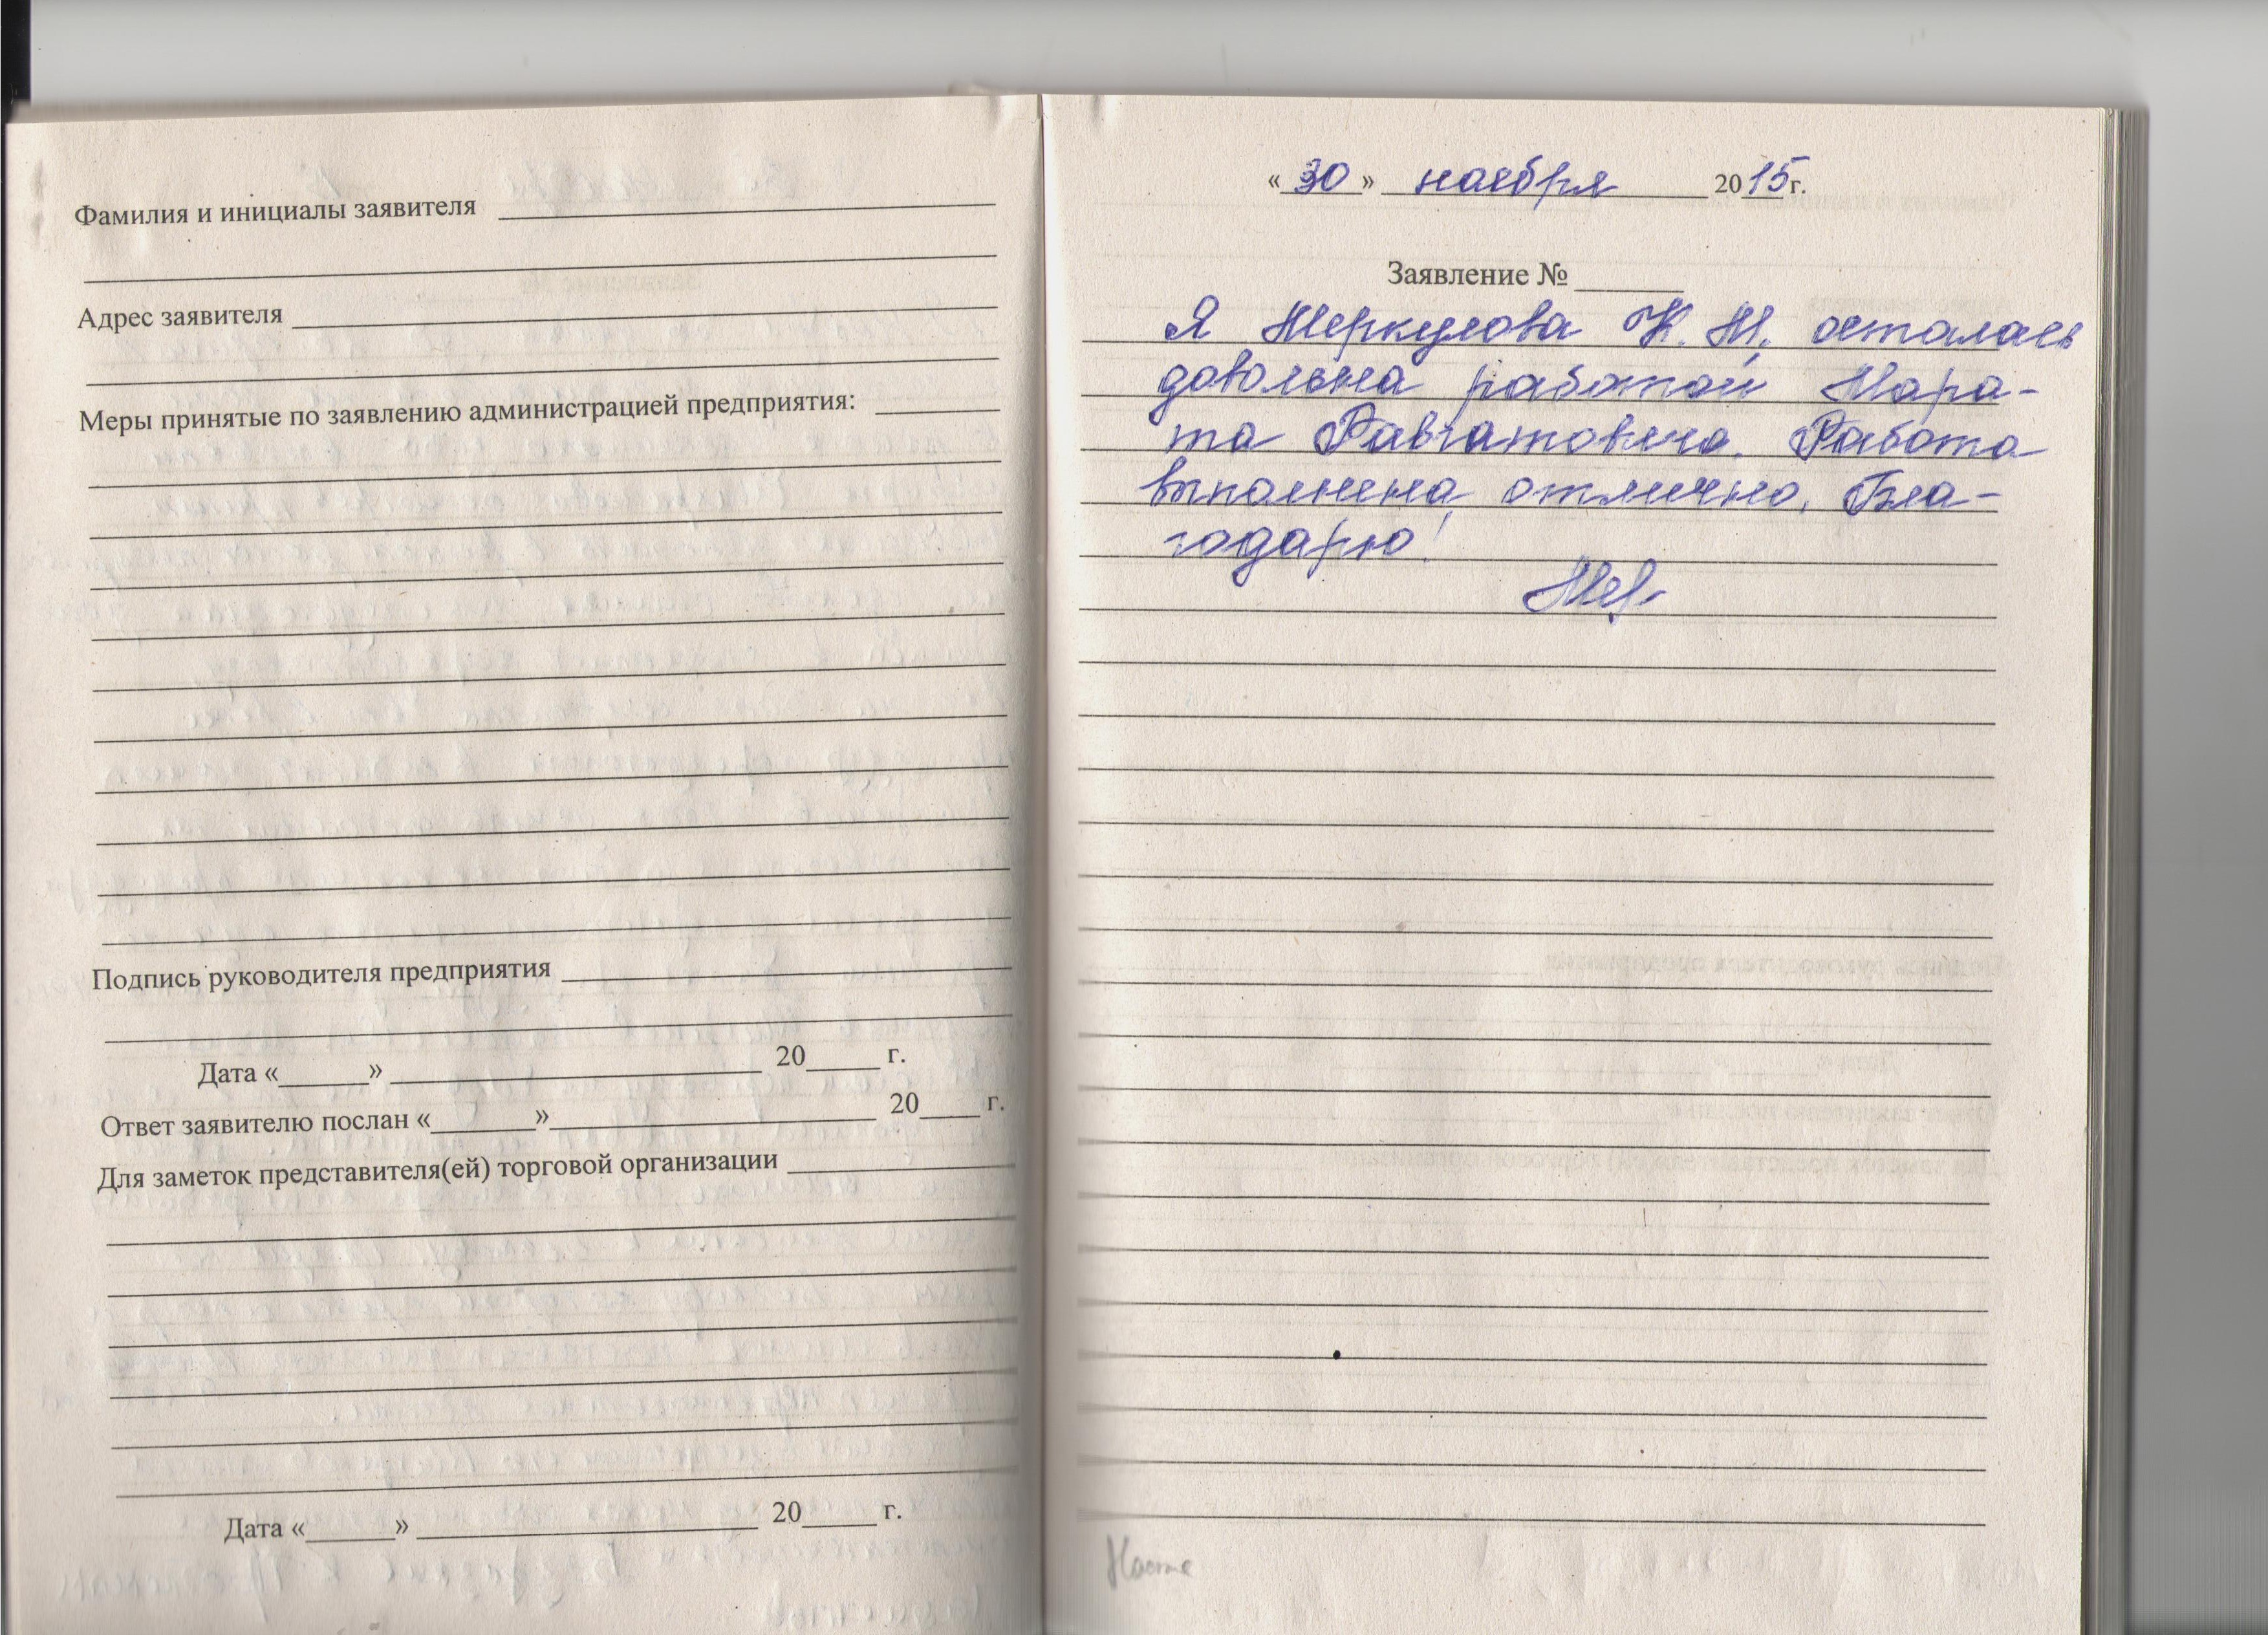 Фамилия и инициалы заявителя
Адрес заявителя
Меры принятые по заявлению администрацией предприятия:
Подпись руководителя предприятия
Дата «______» ______ 20_____ г.
Ответ заявителю послан «_______» ______ 20____ г.
Для заметок представителя(ей) торговой организации
Дата «______» ______ 20_____ г.
«30» ноября 2015г.
Заявление № _______
Я Меркулова К. М. осталась
довольна работой Мара-
та Равгатовича. Работа
выполнена отлично. Бла-
годарю!
Настя